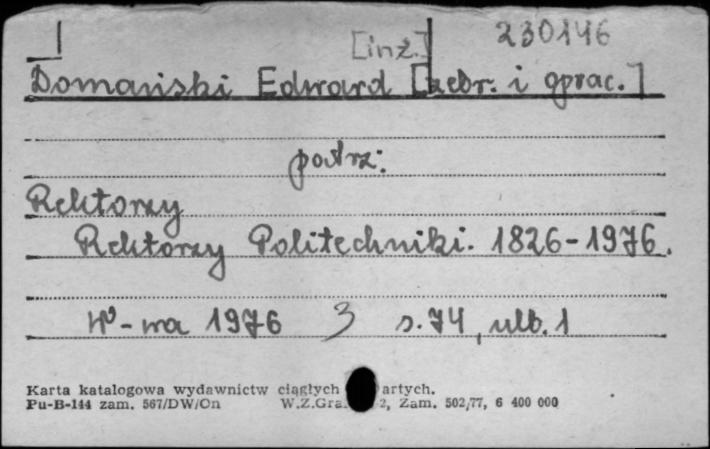 230146
[inż.]
Domański Edward [zebr. i oprac.]
patrz:
Rektorzy
Rektorzy Politechniki. 1826-1976.
W-wa 1976 3 s. 74, ulb. 1
Karta katalogowa wydawnictw ciągłych artych.
Pu-B-144 zam. 567/DW/On W.Z.Gra. 2, Zam. 502/77, 6 400 000